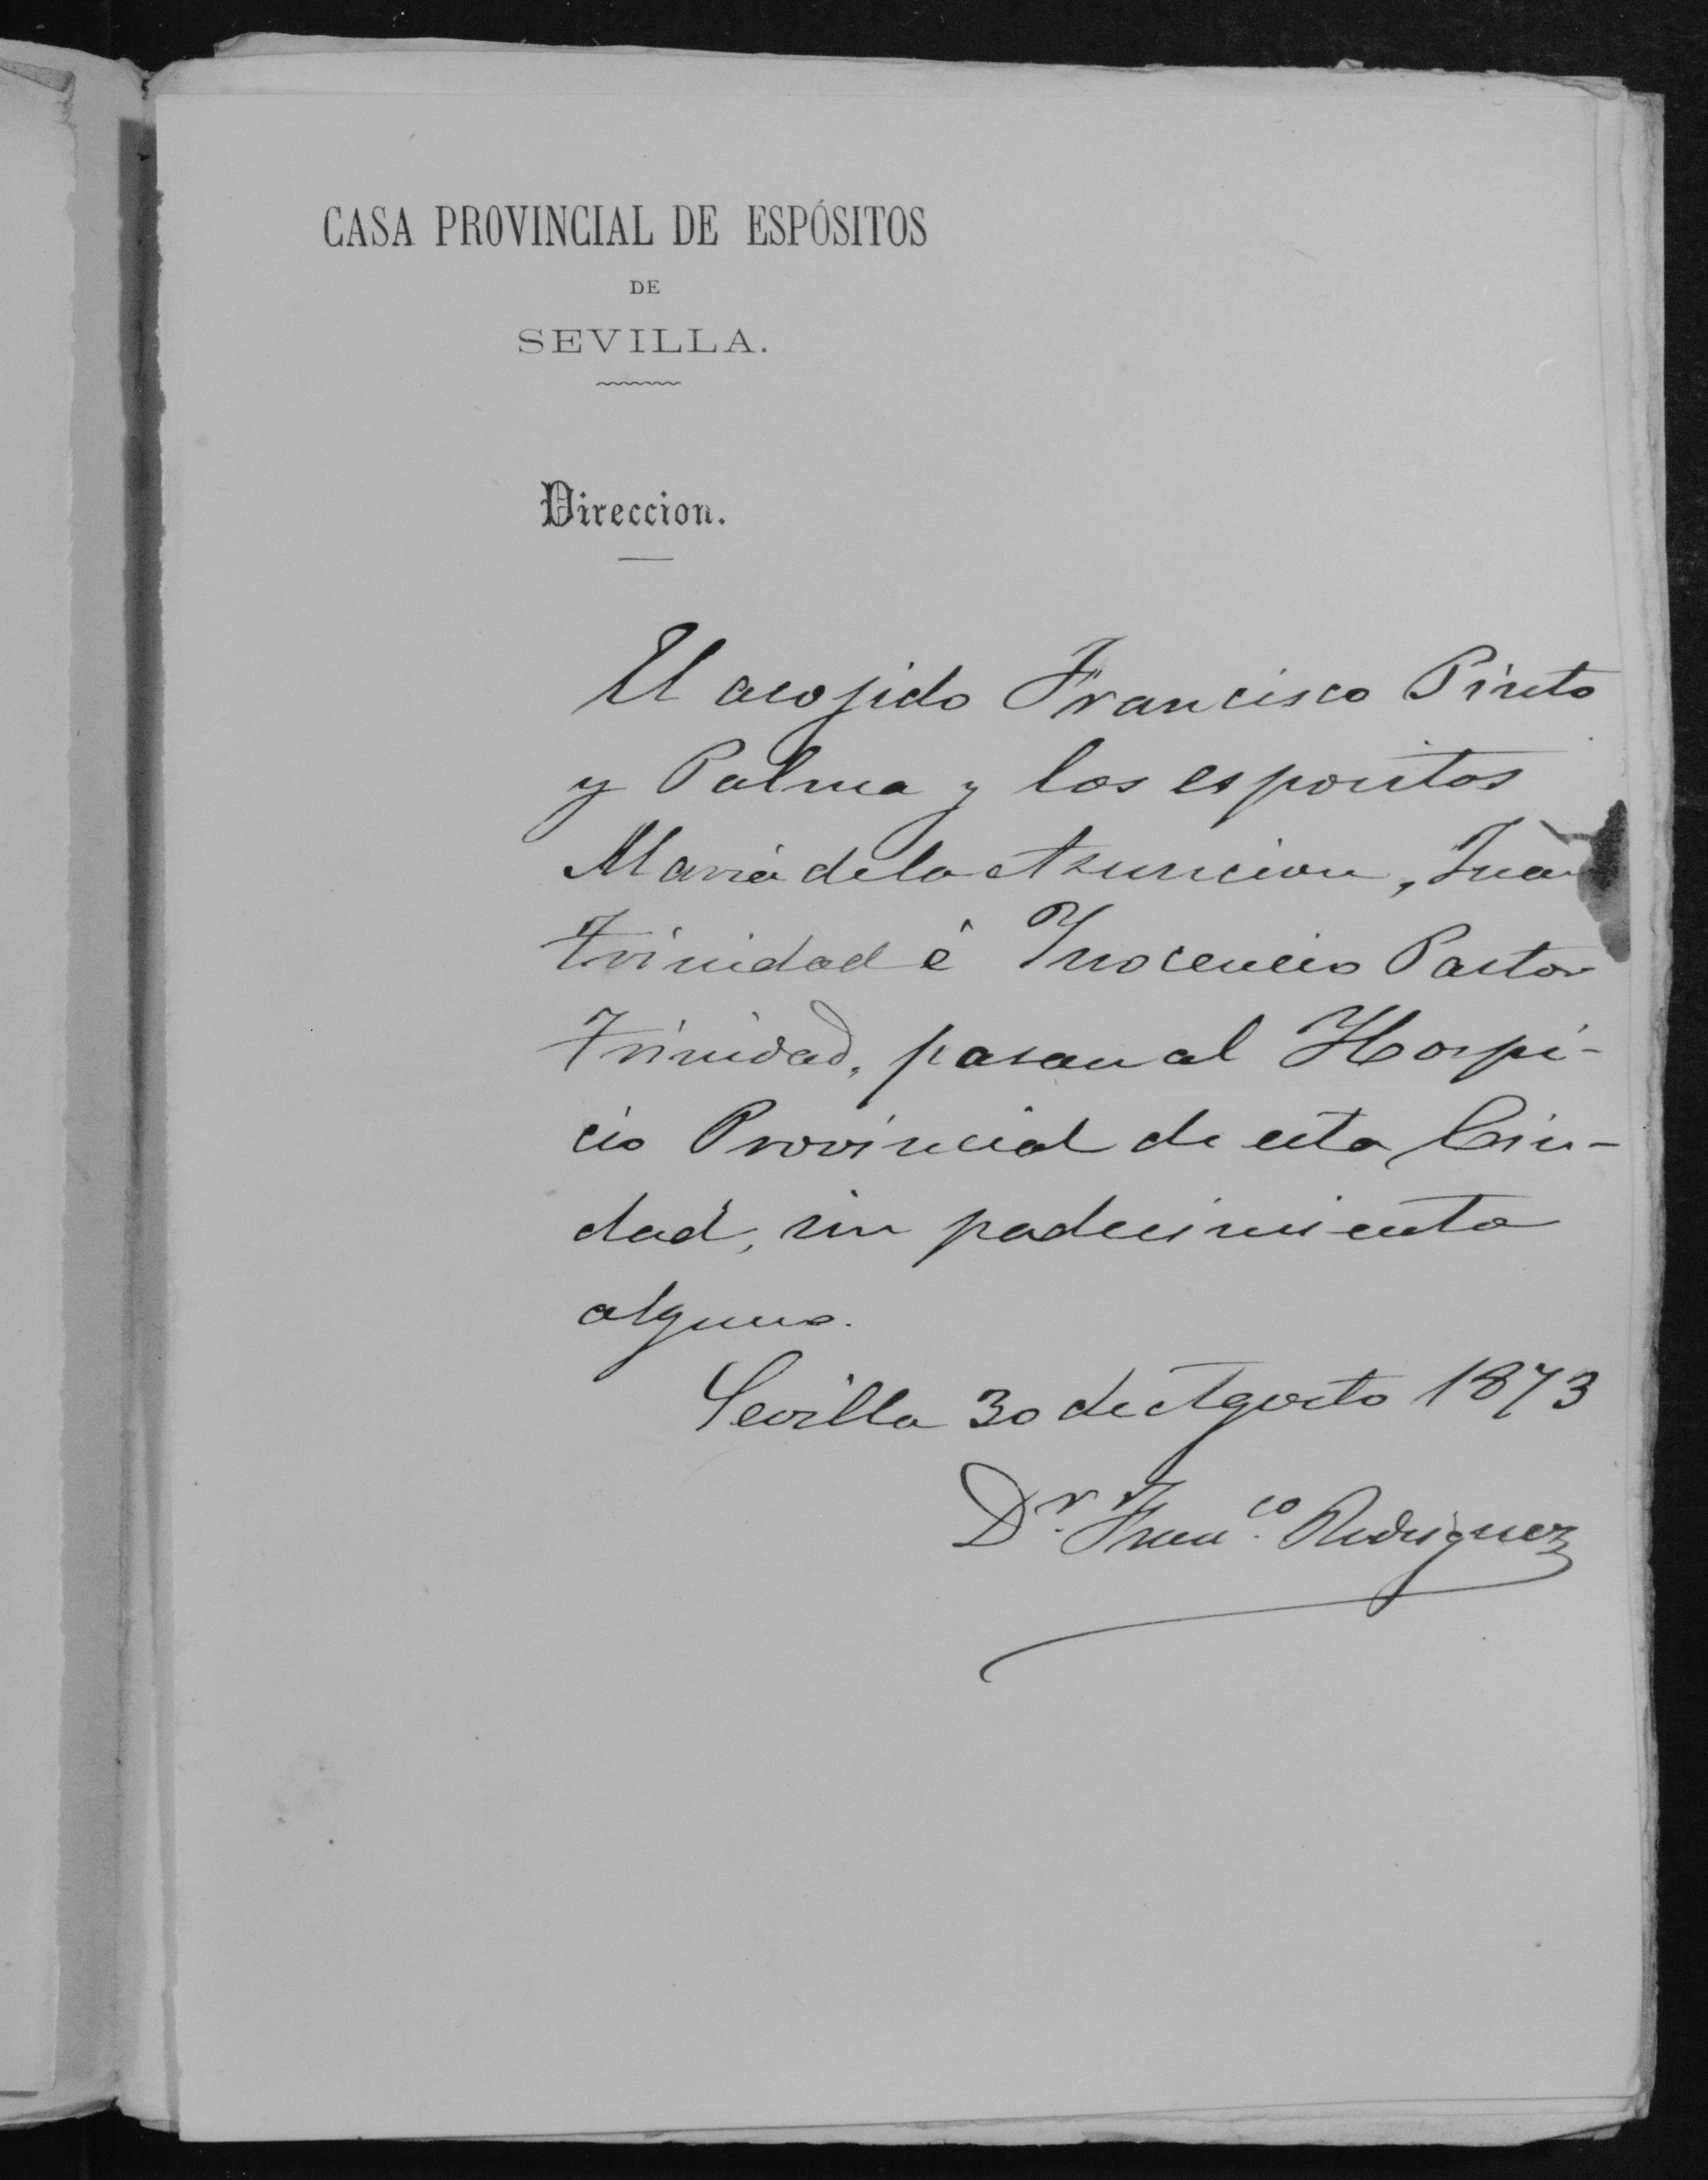 CASA PROVINCIAL DE ESPÓSITOS
DE
SEVILLA.
Direccion.
El acojido Francisco Pinto
y Palma y los espositos
Maria de la Asuncion, Juan
Trinidad é Inocencio Pastor
Trinidad, pasan al Hospi-
cio Provincial de esta Ciu-
dad, sin padecimiento
alguno.
Sevilla 30 de Agosto 1873
Dr. Franco. Rodriguez